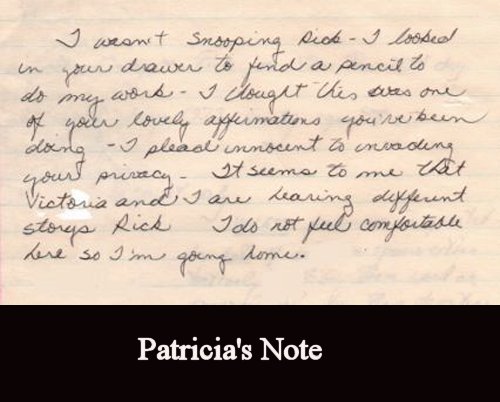 I wasn't snooping Rick - I looked
in your drawer to find a pencil to
do my work - I thought this was one
of your lovely affirmations you've been
doing - I plead innocent to invading
your privacy - It seems to me that
Victoria and I are hearing different
storys Rick I do not feel comfortable
here so I'm going home.
Patricia's Note